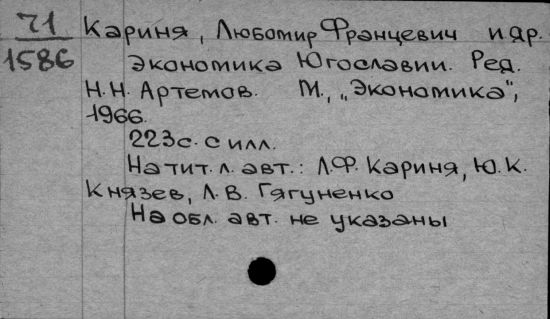 71
1586
Кариня, Любомир Францевич и др.
Экономика Югославии. Ред.
Н.Н. Артемов. М., „Экономика",
1966.
223с. с илл.
На тит. л. авт.: Л.Ф. Кариня, Ю.К.
Князев, Л.В. Тягуненко
На обл. авт. не указаны